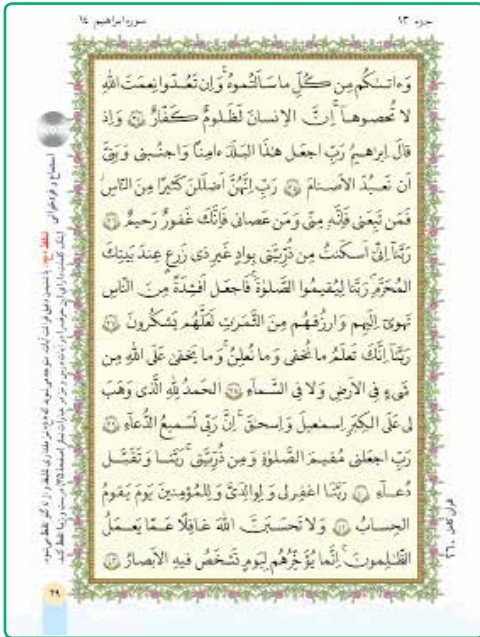 جزء ۱۳
سوره ابراهیم ۱۴
وَءاتىٰكُم مِن كُلِّ ما سَاَلتُموهُ ۚ وَ اِن تَعُدّوا نِعمَتَ اللهِ
لا تُحصوها ۗ اِنَّ الاِنسانَ لَظَلومٌ كَفّارٌ ﴿۳۴﴾ وَ اِذ
قالَ اِبرٰهيمُ رَبِّ اجعَل هٰذَا البَلَدَ ءامِنًا وَ اجنُبنى وَ بَنِىَّ
اَن نَعبُدَ الاَصنامَ ﴿۳۵﴾ رَبِّ اِنَّهُنَّ اَضلَلنَ كَثيرًا مِنَ النّاسِ ۖ
فَمَن تَبِعَنى فَاِنَّهو مِنّى وَ مَن عَصانى فَاِنَّكَ غَفورٌ رَحيمٌ ﴿۳۶﴾
رَبَّنا اِنّى اَسكَنتُ مِن ذُرِّيَّتى بِوادٍ غَيرِ ذى زَرعٍ عِندَ بَيتِكَ
المُحَرَّمِ رَبَّنا لِيُقيمُوا الصَّلوٰةَ فَاجعَل اَفئِدَةً مِنَ النّاسِ
تَهوى اِلَيهِم وَ ارزُقهُم مِنَ الثَّمَرٰتِ لَعَلَّهُم يَشكُرونَ ﴿۳۷﴾
رَبَّنا اِنَّكَ تَعلَمُ ما نُخفى وَ ما نُعلِنُ ۗ وَ ما يَخفىٰ عَلَى اللهِ مِن
شَىءٍ فِى الاَرضِ وَ لا فِى السَّماءِ ﴿۳۸﴾ اَلحَمدُ لِلّٰهِ الَّذى وَهَبَ
لى عَلَى الكِبَرِ اِسمٰعيلَ وَ اِسحٰقَ ۚ اِنَّ رَبّى لَسَميعُ الدُّعاءِ ﴿۳۹﴾
رَبِّ اجعَلنى مُقيمَ الصَّلوٰةِ وَ مِن ذُرِّيَّتى ۚ رَبَّنا وَ تَقَبَّل
دُعاءِ ﴿۴۰﴾ رَبَّنَا اغفِرلى وَ لِوالِدَىَّ وَ لِلمُؤمِنينَ يَومَ يَقومُ
الحِسابُ ﴿۴۱﴾ وَ لا تَحسَبَنَّ اللهَ غافِلًا عَمّا يَعمَلُ
الظّٰلِمونَ ۚ اِنَّما يُؤَخِّرُهُم لِيَومٍ تَشخَصُ فيهِ الاَبصارُ ﴿۴۲﴾
استماع و فرم‌خوانی
قرآن کامل ۲۶۰
۲۹